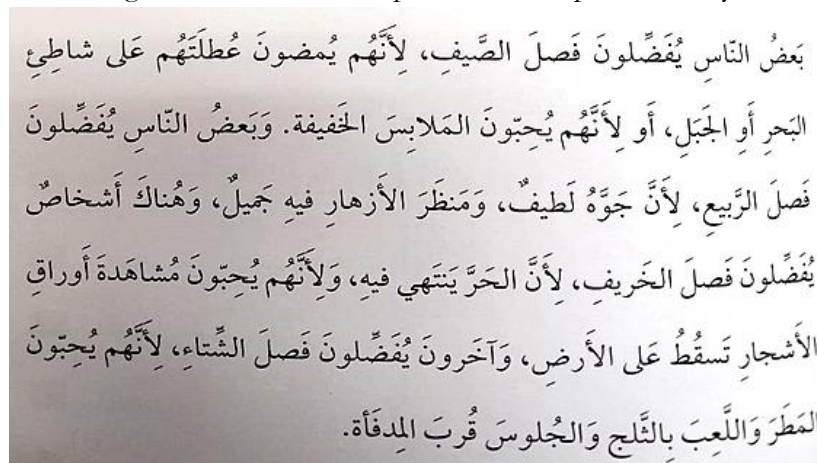 بَعضُ النّاسِ يُفَضِّلونَ فَصلَ الصَّيفِ، لِأَنَّهُم يُمضونَ عُطلَتَهُم عَلى شاطِئِ
البَحرِ أَوِ الجَبَلِ، أَو لِأَنَّهُم يُحِبّونَ المَلابِسَ الخَفيفة. وَبَعضُ النّاسِ يُفَضِّلونَ
فَصلَ الرَّبيعِ، لِأَنَّ جَوَّهُ لَطيفٌ، وَمَنظَرَ الأَزهارِ فيهِ جَميلٌ، وَهُناكَ أَشخاصٌ
يُفَضِّلونَ فَصلَ الخَريفِ، لِأَنَّ الحَرَّ يَنتَهي فيهِ، وَلِأَنَّهُم يُحِبّونَ مُشاهَدةَ أَوراقِ
الأَشجارِ تَسقُطُ عَلى الأَرضِ، وَآخَرونَ يُفَضِّلونَ فَصلَ الشِّتاءِ، لِأَنَّهُم يُحِبّونَ
المَطَرَ وَاللَّعِبَ بِالثَّلجِ وَالجُلوسَ قُربَ المِدفَأة.